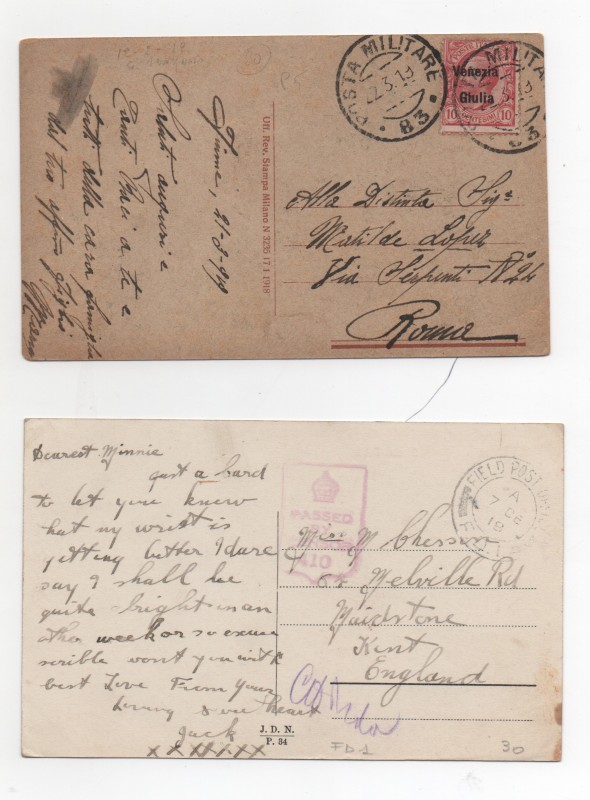 Fiume, 21-3-919
Saluti auguri e
tanti Baci a te e
tutti della cara famiglia
dal tuo affmo
Uff. Rev. Stampa Milano N 3235 17 1 1918
POSTA MILITARE
22.3.19
83
POSTE ITALIANE
Venezia
Giulia
10 CENTESIMI 10
MILITARE
83
Alla Distinta Sigª
Matilde Lopez
Via Serpenti Nº 24
Roma
Dearest Minnie
just a card
to let you know
that my wrist is
getting better I dare
say I shall be
quite bright in an
other week or so excuse
scrible wont you with
best Love From Your
Loving Sweetheart
Jack
x x x x x x x
J. D. N.
P. 34
PASSED
BY
CENSOR
410
FIELD POST OFFICE
A
7 DE
18
Miss M Chesson
Melville Rd
Maidstone
Kent
England
FDs
30